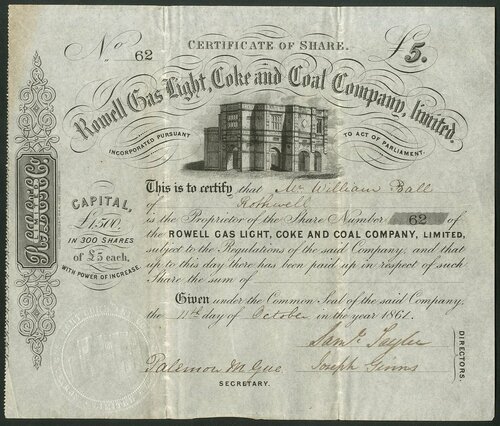 No 62
CERTIFICATE OF SHARE.
£5.
Rowell Gas Light, Coke and Coal Company, limited.
INCORPORATED PURSUANT TO ACT OF PARLIAMENT.
CAPITAL,
£1500,
IN 300 SHARES
OF £5 each,
WITH POWER OF INCREASE.
This is to certify that Mr William Ball
of Rothwell
is the Proprietor of the Share Number 62 of
the ROWELL GAS LIGHT, COKE AND COAL COMPANY, LIMITED,
subject to the Regulations of the said Company, and that
up to this day there has been paid up in respect of such
Share the sum of
Given under the Common Seal of the said Company,
the 11th day of October in the year 1861.
Saml. Taylor
Joseph Ginns
DIRECTORS.
Palemon M Gue
SECRETARY.